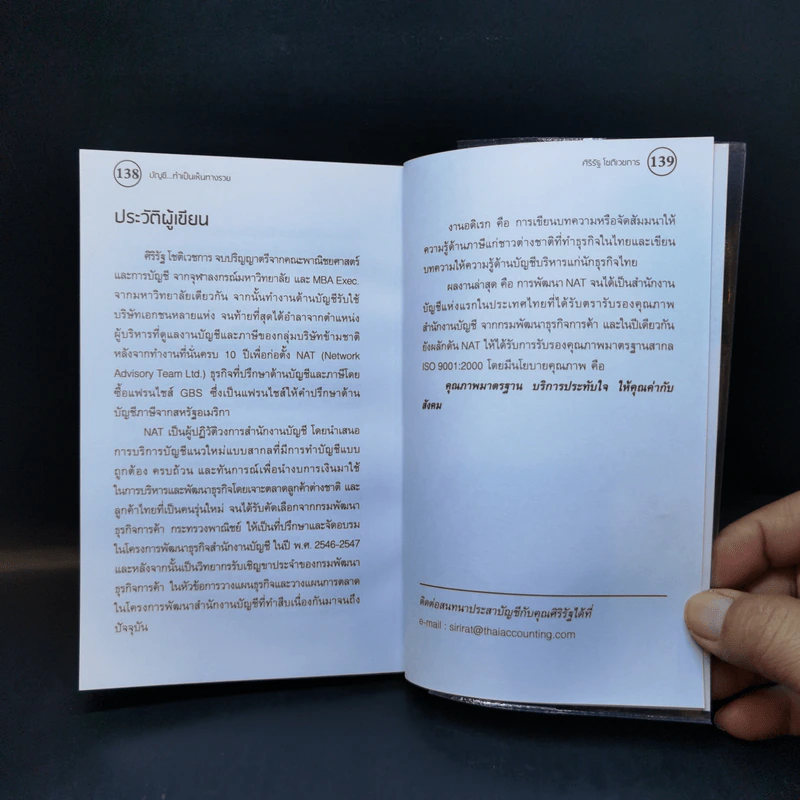 138 บัญชี...ทำเป็นเห็นทางรวย
ประวัติผู้เขียน
ศิริรัฐ โชติเวชการ จบปริญญาตรีจากคณะพาณิชยศาสตร์
และการบัญชี จากจุฬาลงกรณ์มหาวิทยาลัย และ MBA Exec.
จากมหาวิทยาลัยเดียวกัน จากนั้นทำงานด้านบัญชีรับใช้
บริษัทเอกชนหลายแห่ง จนท้ายที่สุดได้อำลาจากตำแหน่ง
ผู้บริหารที่ดูแลงานบัญชีและภาษีของกลุ่มบริษัทข้ามชาติ
หลังจากทำงานที่นั่นครบ 10 ปีเพื่อก่อตั้ง NAT (Network
Advisory Team Ltd.) ธุรกิจที่ปรึกษาด้านบัญชีและภาษีโดย
ซื้อแฟรนไชส์ GBS ซึ่งเป็นแฟรนไชส์ให้คำปรึกษาด้าน
บัญชีภาษีจากสหรัฐอเมริกา
NAT เป็นผู้ปฏิวัติวงการสำนักงานบัญชี โดยนำเสนอ
การบริการบัญชีแนวใหม่แบบสากลที่มีการทำบัญชีแบบ
ถูกต้อง ครบถ้วน และทันการณ์เพื่อนำงบการเงินมาใช้
ในการบริหารและพัฒนาธุรกิจโดยเจาะตลาดลูกค้าต่างชาติ และ
ลูกค้าไทยที่เป็นคนรุ่นใหม่ จนได้รับคัดเลือกจากกรมพัฒนา
ธุรกิจการค้า กระทรวงพาณิชย์ ให้เป็นที่ปรึกษาและจัดอบรม
ในโครงการพัฒนาธุรกิจสำนักงานบัญชี ในปี พ.ศ. 2546-2547
และหลังจากนั้นเป็นวิทยากรรับเชิญขาประจำของกรมพัฒนา
ธุรกิจการค้า ในหัวข้อการวางแผนธุรกิจและวางแผนการตลาด
ในโครงการพัฒนาสำนักงานบัญชีที่ทำสืบเนื่องกันมาจนถึง
ปัจจุบัน
ศิริรัฐ โชติเวชการ 139
งานอดิเรก คือ การเขียนบทความหรือจัดสัมมนาให้
ความรู้ด้านภาษีแก่ชาวต่างชาติที่ทำธุรกิจในไทยและเขียน
บทความให้ความรู้ด้านบัญชีบริหารแก่นักธุรกิจไทย
ผลงานล่าสุด คือ การพัฒนา NAT จนได้เป็นสำนักงาน
บัญชีแห่งแรกในประเทศไทยที่ได้รับตรารับรองคุณภาพ
สำนักงานบัญชี จากกรมพัฒนาธุรกิจการค้า และในปีเดียวกัน
ยังผลักดัน NAT ให้ได้รับการรับรองคุณภาพมาตรฐานสากล
ISO 9001:2000 โดยมีนโยบายคุณภาพ คือ
คุณภาพมาตรฐาน บริการประทับใจ ให้คุณค่ากับ
สังคม
ติดต่อสนทนาประสาบัญชีกับคุณศิริรัฐได้ที่
e-mail : sirirat@thaiaccounting.com